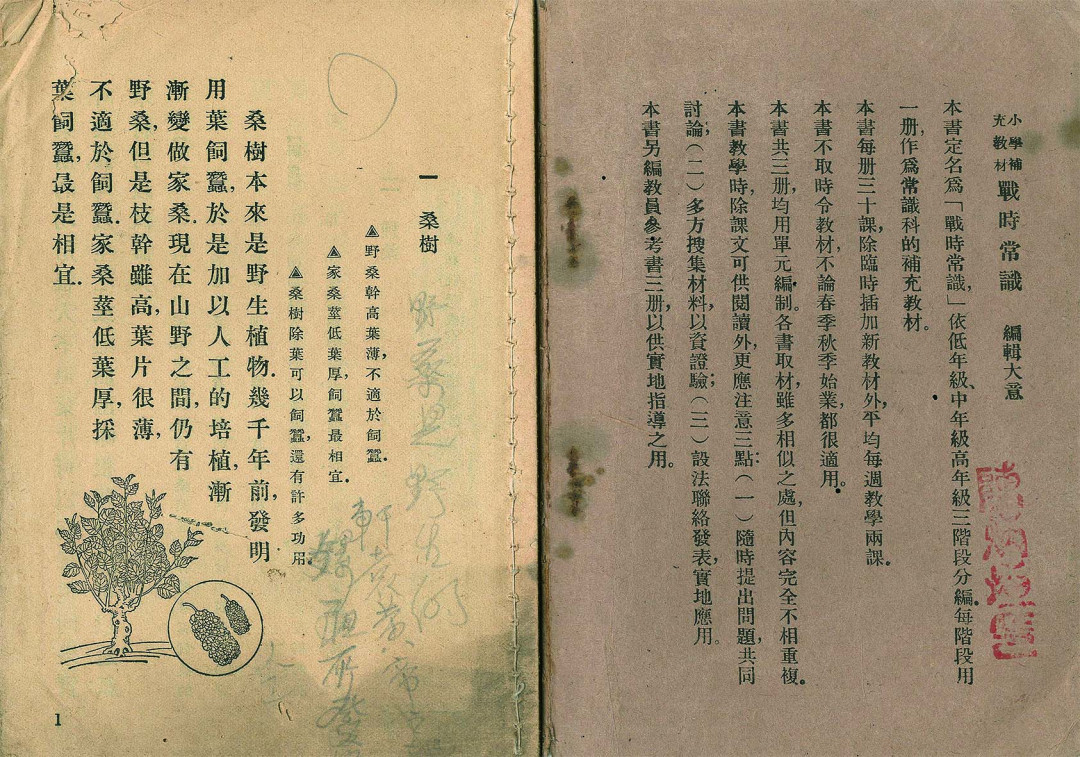 小學補充教材 戰時常識 編輯大意
本書定名爲「戰時常識,」依低年級、中年級高年級三階段分編.每階段用
一册,作爲常識科的補充教材。
本書每册三十課,除臨時插加新教材外,平均每週教學兩課.
本書不取時令教材,不論春季秋季始業都很適用。
本書共三册,均用單元編制。各書取材,雖多相似之處,但內容完全不相重複。
本書教學時,除課文可供閱讀外,更應注意三點:(一)隨時提出問題,共同
討論;(二)多方搜集材料,以資證驗;(三)設法聯絡發表,實地應用。
本書另編教員參考書三册,以供實地指導之用。
一 桑樹
▲野桑幹高葉薄,不適於飼蠶.
▲家桑莖低葉厚,飼蠶最相宜.
▲桑樹除葉可以飼蠶,還有許多功用.
桑樹本來是野生植物.幾千年前,發明
用葉飼蠶,於是加以人工的培植,漸
漸變做家桑.現在山野之間,仍有
野桑,但是枝幹雖高,葉片很薄,
不適於飼蠶.家桑莖低葉厚,採
葉飼蠶,最是相宜.
野桑是野生的
軒轅黃帝
所發
1